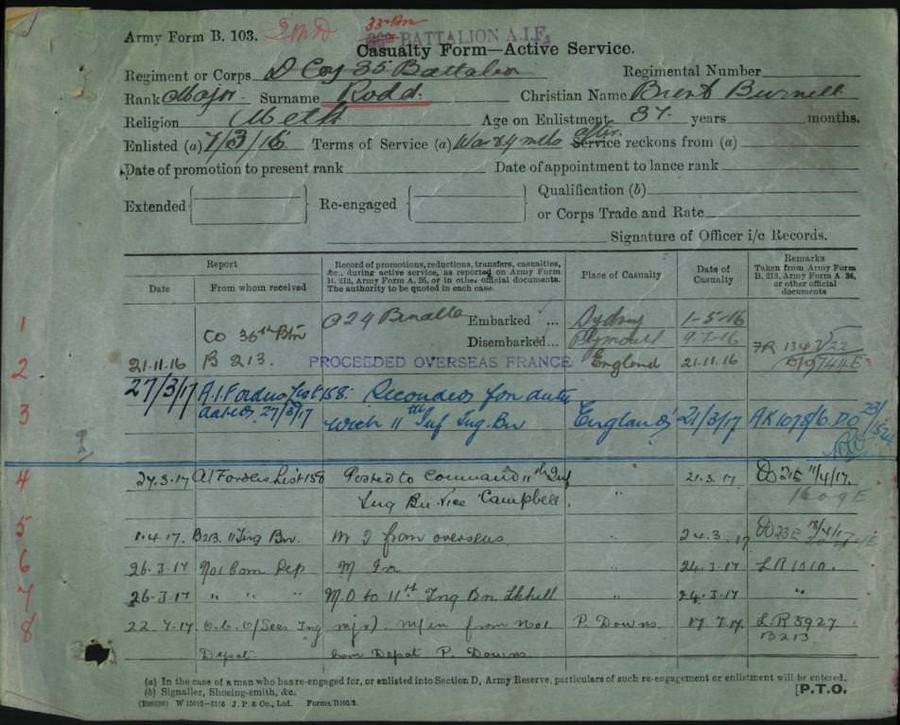 Army Form B. 103. 2nd 33rd Bn BATTALION A.I.F.
Casualty Form—Active Service.
Regiment or Corps D Coy 35 Battalion Regimental Number
Rank Major Surname Rodd. Christian Name Brent Burnell
Religion Meth Age on Enlistment 37. years months.
Enlisted (a) 7/3/16 Terms of Service (a) War & 4 mths after Service reckons from (a)
Date of promotion to present rank Date of appointment to lance rank
Extended Re-engaged Qualification (b)
or Corps Trade and Rate
Signature of Officer i/c Records.
Report
Date From whom received
Record of promotions, reductions, transfers, casualties,
&c., during active service, as reported on Army Form
B. 213, Army Form A. 36, or in other official documents.
The authority to be quoted in each case.
Place of Casualty
Date of
Casualty
Remarks
Taken from Army Form
B. 213, Army Form A. 36,
or other official
documents
1 A 24 Benalla Embarked ... Sydney 1-5-16
CO 36th Btn Disembarked... Plymouth 9.7.16
2 21.11.16 B 213. PROCEEDED OVERSEAS FRANCE England 21.11.16
27/3/17 A.I.F orders List 158. for duty
3 dated 27/3/17 with 11th Inf Trg. Bn England 21/3/17
4 27.3.17 AIF orders List 158 Posted to Command 11th Inf 21.3.17 11/4/17.
Trg Bn vice Campbell "
5 1.4.17. B213. 11 Trg Bn. M I from overseas " 24.3.17
6 26.3.17 " 24.3.17
7 26.3.17 " " " M.O to 11th Trg Bn " 24.3.17 "
8 22.7.17 from P. Downs 17.7.17. B213
Depot. Depot P. Downs
(a) In the case of a man who has re-engaged for, or enlisted into Section D, Army Reserve, particulars of such re-engagement or enlistment will be entered.
(b) Signaller, Shoeing-smith, &c.
[P.T.O.
J. P. & Co., Ltd.